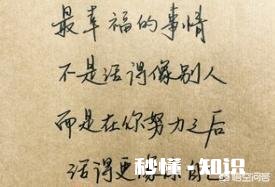 最幸福的事情
不是活得像别人
而是在你努力之后
活得更
秒懂·知识
悟空问答